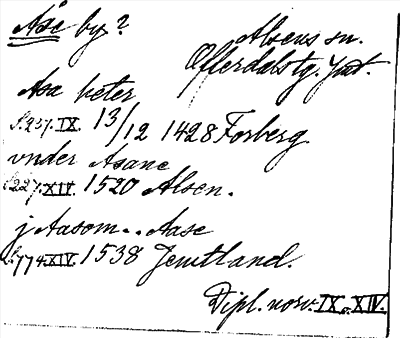 Åse by?
Alsens sn.
Offerdals tg. Jmt.
Asa heter
S. 257. IX. 13/12 1428 Forberg
vnder Asane
S. 227. XIV. 1520 Alsen.
j Aasom.. Aase
S. 774. XIV. 1538 Jemtland.
Dipl. norv. IX o. XIV.